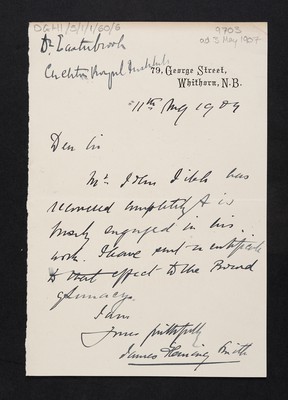 DGH1/5/1/1/60/6
9703
ad. 3 May 1907
Dr Easterbrook
Crichton Royal Institute
79, George Street,
Whithorn, N.B.
11th May 1909
Dear Sir
Mr. John has
recovered completely & is
busily engaged in his
work. I have sent a certificate
to that effect to the Board
of Lunacy.
I am
Yours faithfully
James Fleming